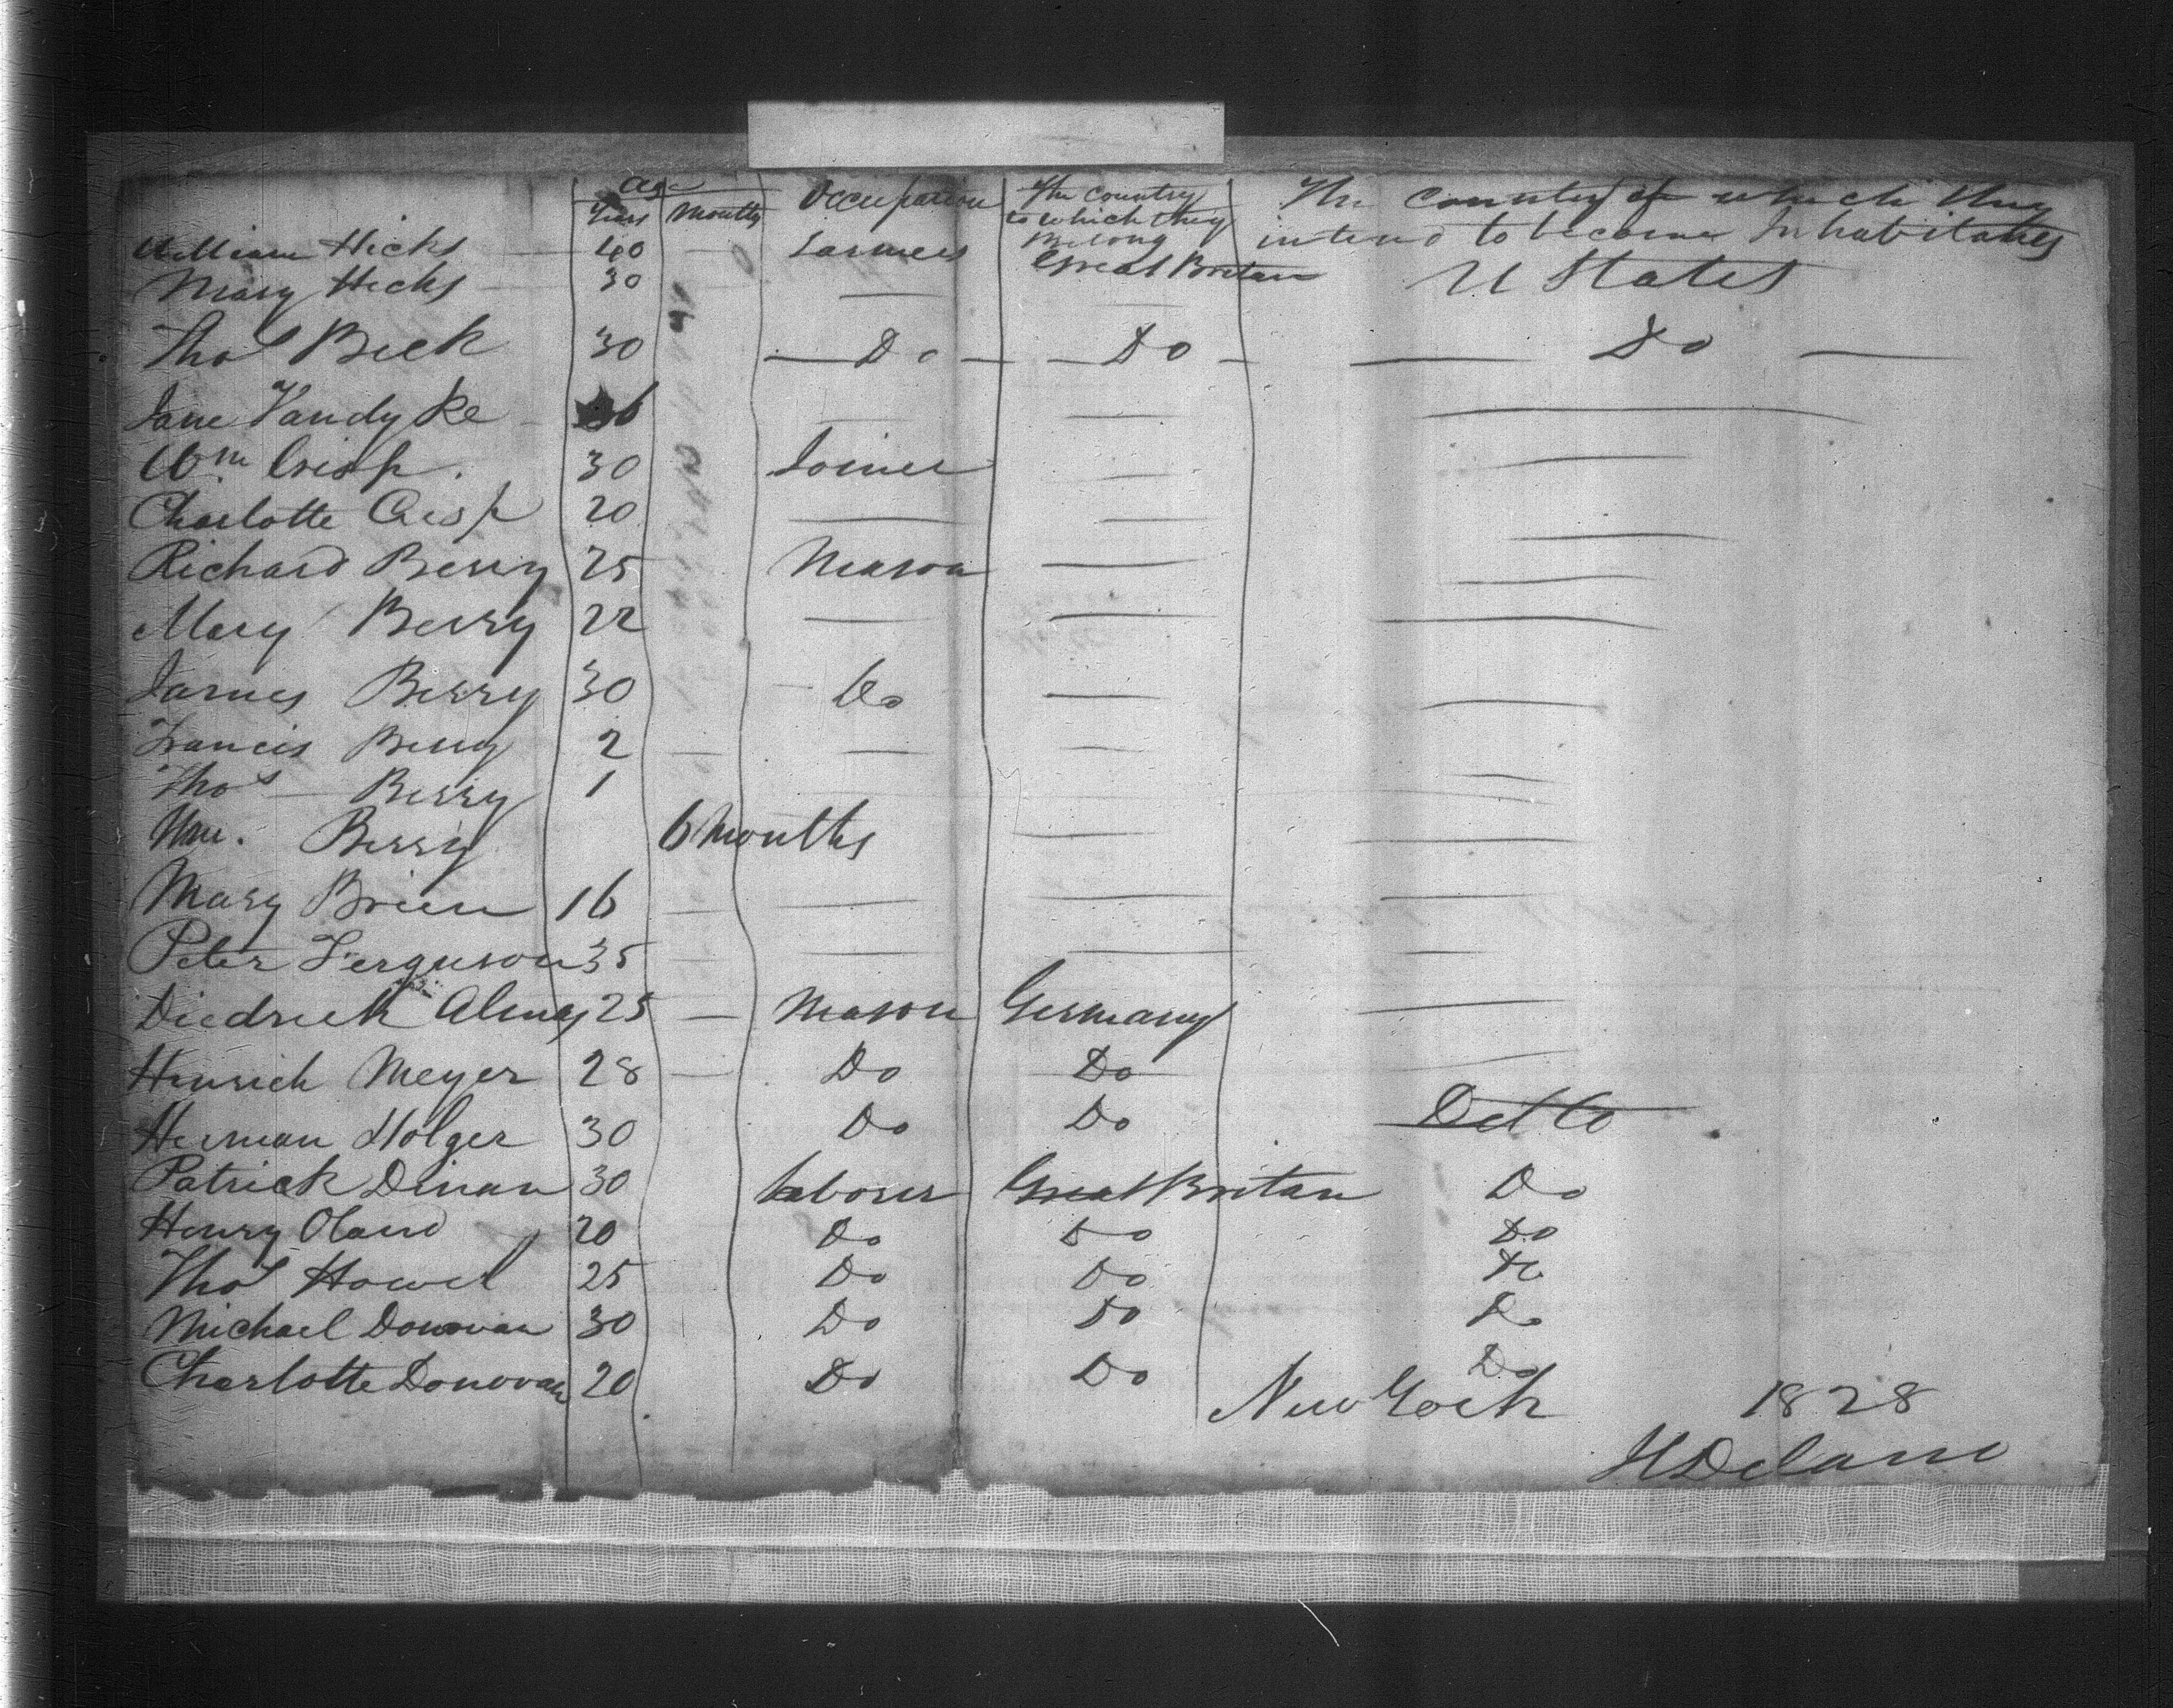 Age
Years Months Occupation The Country to which they belong The Country of which they intend to become Inhabitants
William Hicks — 40 — Farmer Great Britain U States
Mary Hicks — 30 —
Thos Beck 30 — Do — — Do — — Do —
Jane Vandyke - — — —
Wm Crisp. 30 Joiner — —
Charlotte Crisp 20 — — —
Richard Berry 25 Mason — —
Mary Berry 22 — — —
James Berry 30 — Do — —
Francis Berry 2 — — —
Thos — Berry 1 —
Wm. Berry 6 Months — —
Mary Brien 16 — — — —
Peter Ferguson 35 — — — —
Diedrick 25 — Mason Germany —
Hinrich Meyer 28 — Do Do —
Herman Holger 30 Do Do Ditto
Patrick Dinan 30 Laborer Great Britain Do
Henry Oland 20 Do Do Do
Thos Howel 25 Do Do Do
Michael Donovan 30 Do Do Do
Charlotte Donovan 20 Do Do Do
New York 1828
H Delano